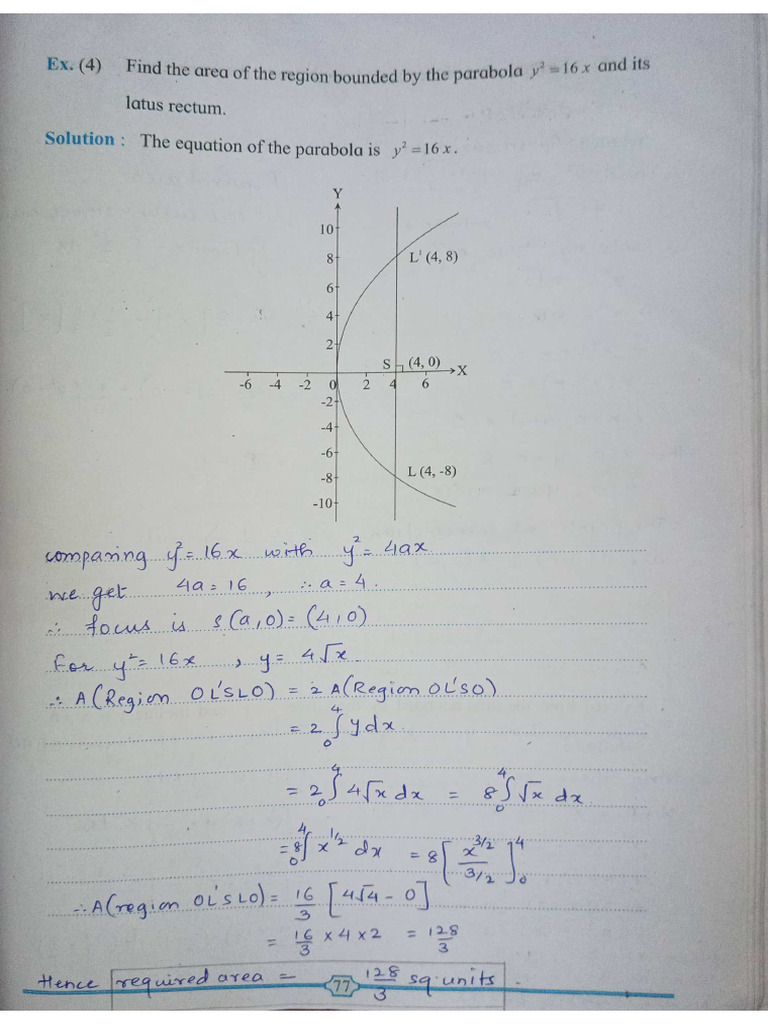 Ex. (4) Find the area of the region bounded by the parabola y² = 16 x and its
latus rectum.
Solution : The equation of the parabola is y² = 16 x.
Y
10
8
L' (4, 8)
6
4
2
S (4, 0)
X
-6 -4 -2 0 2 4 6
-2
-4
-6
-8
L (4, -8)
-10
comparing y² = 16x with y² = 4ax
we get 4a = 16 , ∴ a = 4.
∴ focus is S(a,0) = (4,0)
For y² = 16x , y = 4√x
∴ A(Region OL'SLO) = 2 A(Region OL'SO)
= 2 ∫₀⁴ y dx.
= 2 ∫₀⁴ 4√x dx = 8 ∫₀⁴ √x dx.
= 8 ∫₀⁴ x^1/2 dx = 8 [ x^3/2 / 3/2 ]₀⁴
∴ A(region OL'SLO) = 16/3 [4√4 - 0]
= 16/3 × 4 × 2 = 128/3
Hence required area = 128/3 sq.units.
77